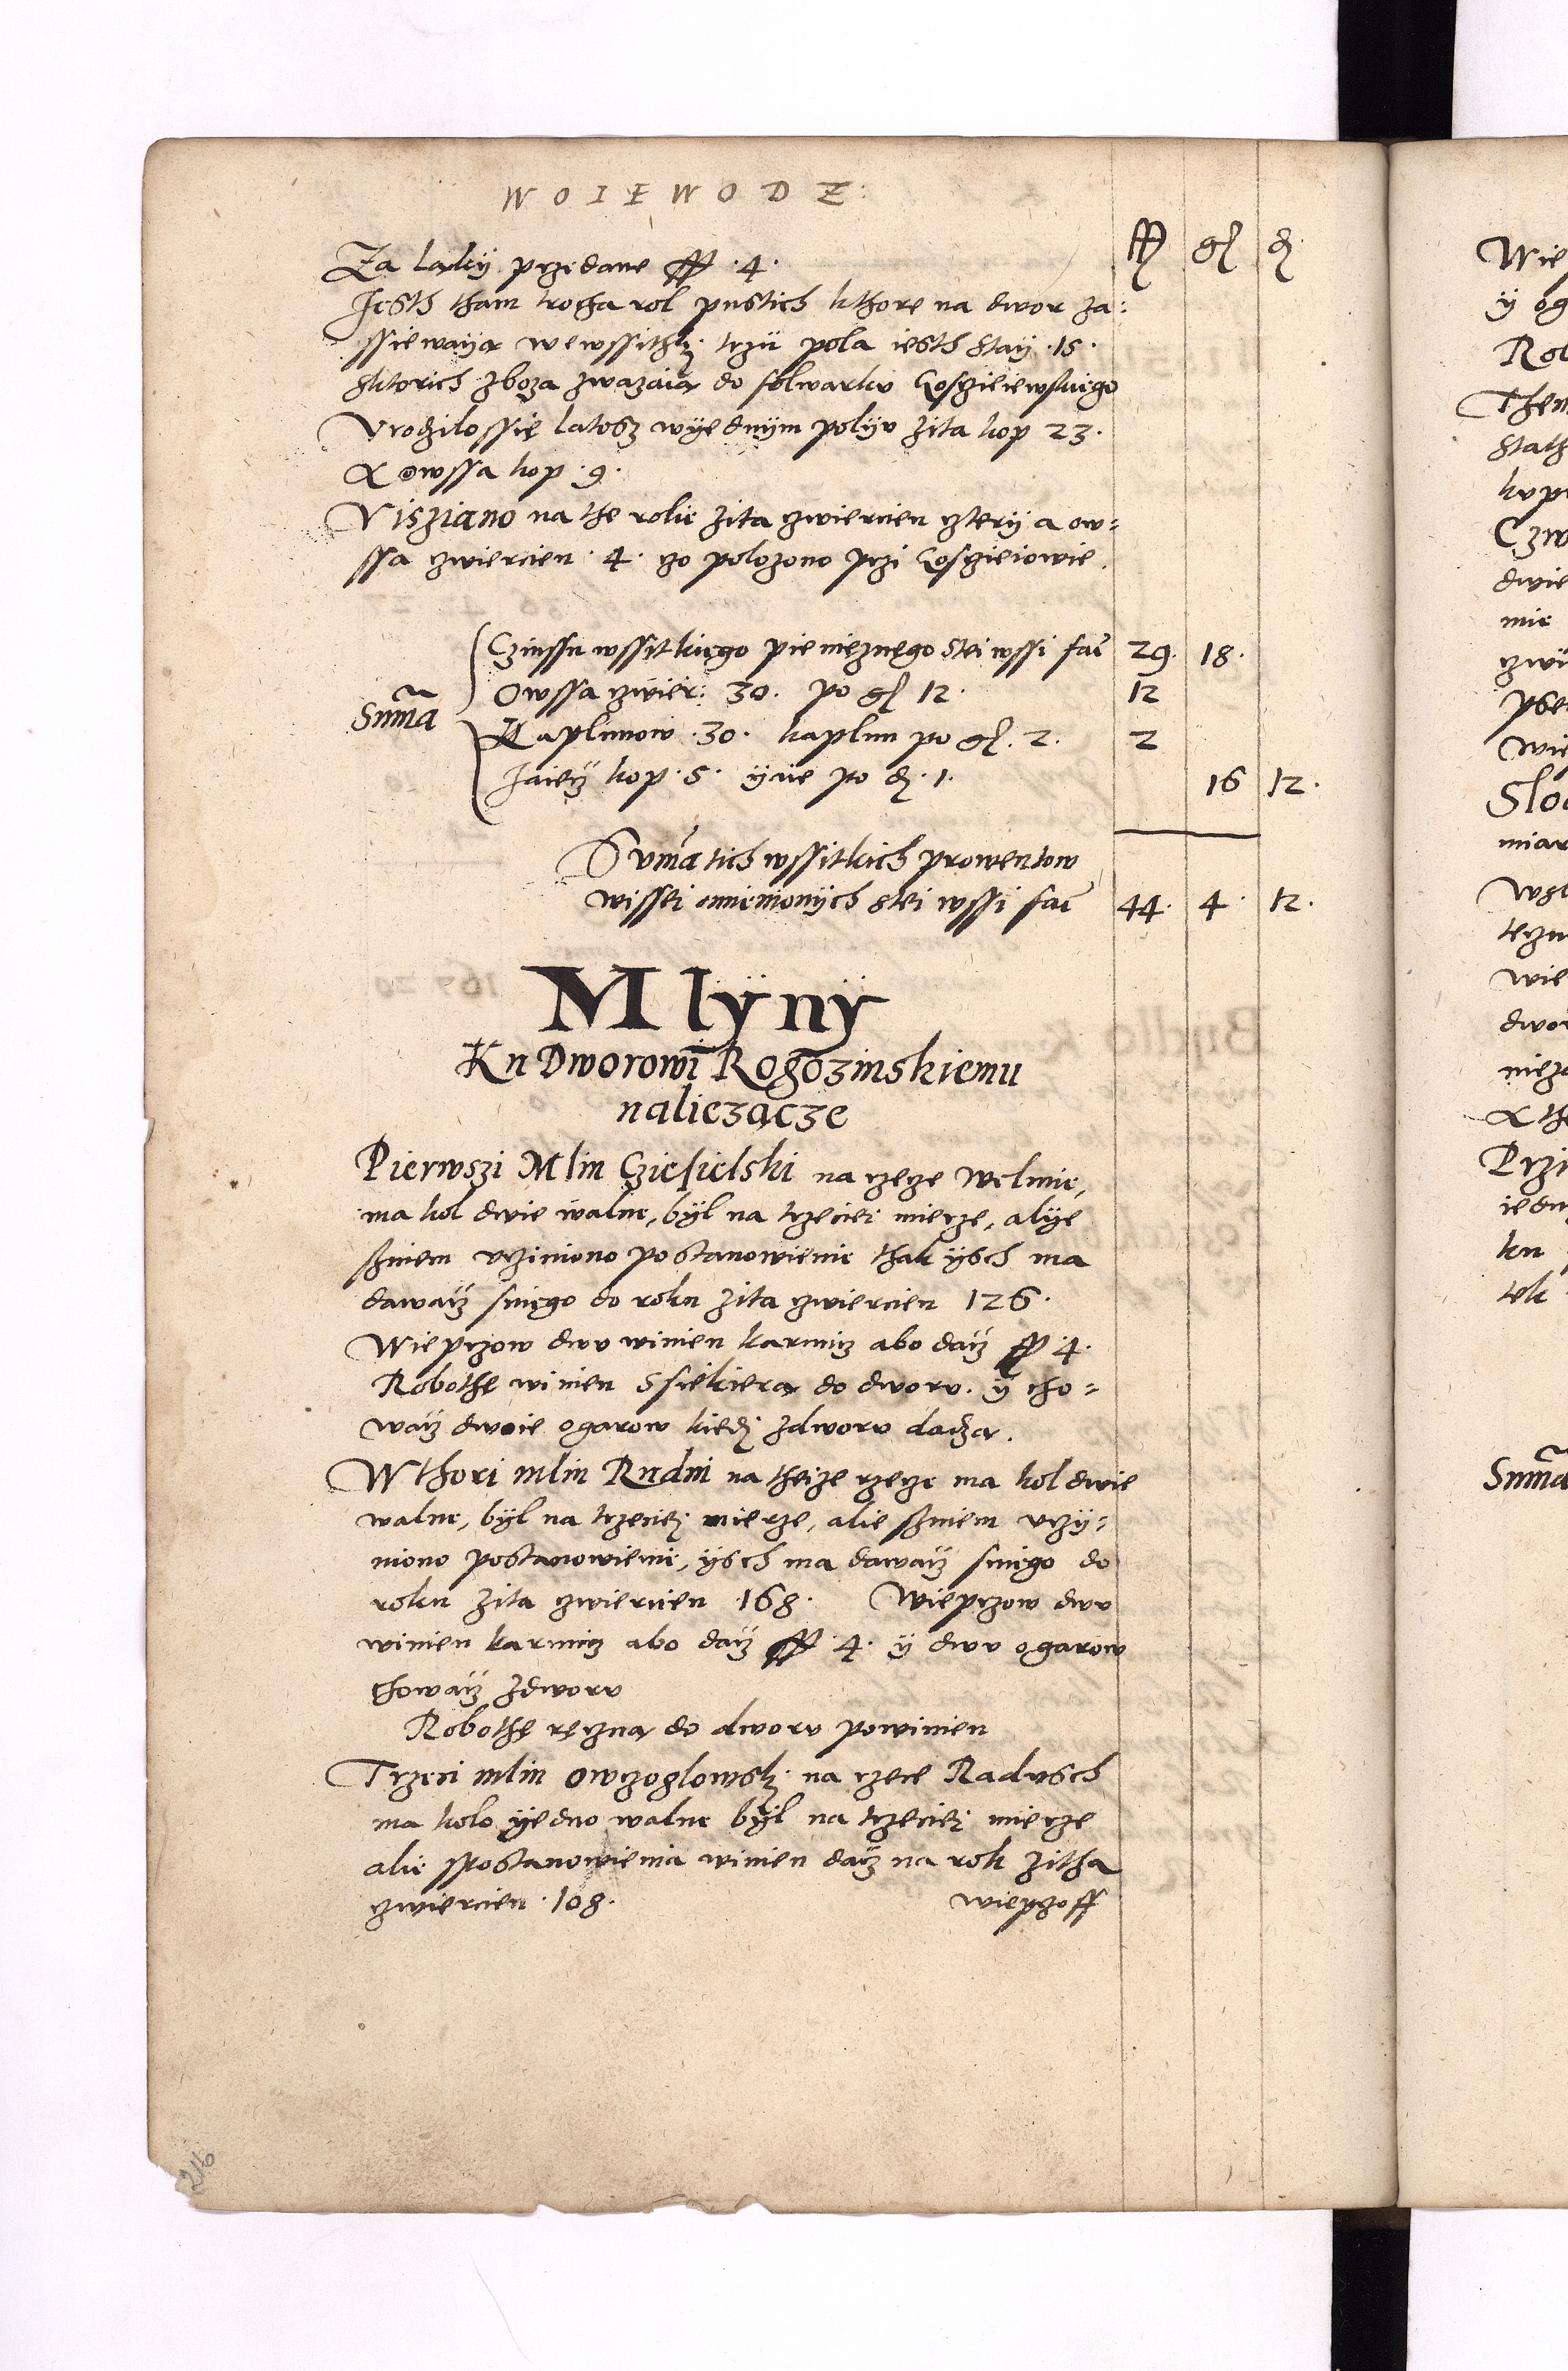 WOIEWODZ:
ff gl d
Za laky przedane ff .4.
Jesth tham trocha rol pustich kthore na dwor za:
ssiewaya wewssithki trzii pola iesth stay .15.
sktorich zboza zwazaia do folwarku Gosczieiewskiego
Vrodzilossię latosz wyednym polyv zita kop 23.
A owssa kop .9.
Visziano na the rolie zita czwiercien cztery a ow=
ssa czwiercien .4. czo polozono przi Gosczieiowie.
Summa
Czinssu wssitkiego pienieznego stei wssi fai 29. 18.
Owssa czwier: 30. po gl 12. 12
Kaplunow .30. kaplun po gl. 2. 2
Jaiecz kop .5. yaie po d. 1. 16 12.
Suma tich wssitkich prowentow
wissei omienionych stei wssi fai 44. 4. 12.
Mlyny
Ku Dworowi Rogozinskiemu
naliezacze
Pierwszi Mlin Cziesielski na rzecze Welnie,
ma kol dwie walne, był na trzeciei mierze, alye
szniem vcziniono postanowienie thak ysch ma
dawacz sniego do roku zita czwiercien 126.
Wieprzow dwu winien karmicz abo dacz ff 4.
Robothę winien Ssiekiera do dworu. y cho=
wacz dwoie ogarow kiedi zdworu dadza.
Wthori mlin Rudni na theize rzecze ma kol dwie
walne, był na trzeciei mierze, alie szniem vczy=
niono postanowienie, ysch ma dawacz sniego do
roku zita czwiercien 168. Wieprzow dwu
winien karmicz abo dacz ff .4. y dwu ogarow
chowacz zdworu
Robothę ręczna do dworu powinien
Trzeci mlin owczoglowski na rzece Radusch
ma kolo yedno walne był na trzeciei mierze
alie spostanowienia winien dacz na rok zitha
czwiercien .108. wieprzoff
216